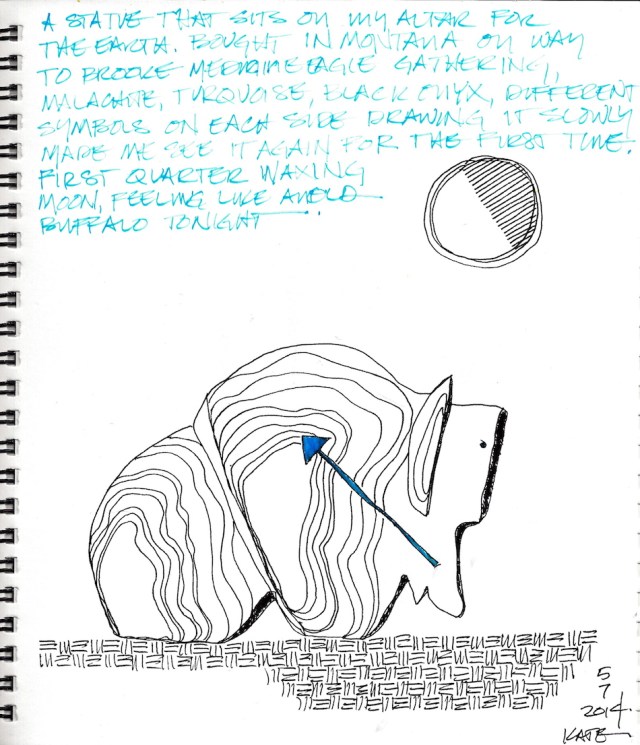 A STATUE THAT SITS ON MY ALTAR FOR
THE EARTH. BOUGHT IN MONTANA ON WAY
TO BROOKE MEDICINE EAGLE GATHERING,
MALACHITE, TURQUOISE, BLACK ONYX, DIFFERENT
SYMBOLS ON EACH SIDE DRAWING IT SLOWLY
MADE ME SEE IT AGAIN FOR THE FIRST TIME.
FIRST QUARTER WAXING
MOON, FEELING LIKE AN OLD
BUFFALO TONIGHT.
5
7
2014.
KATE